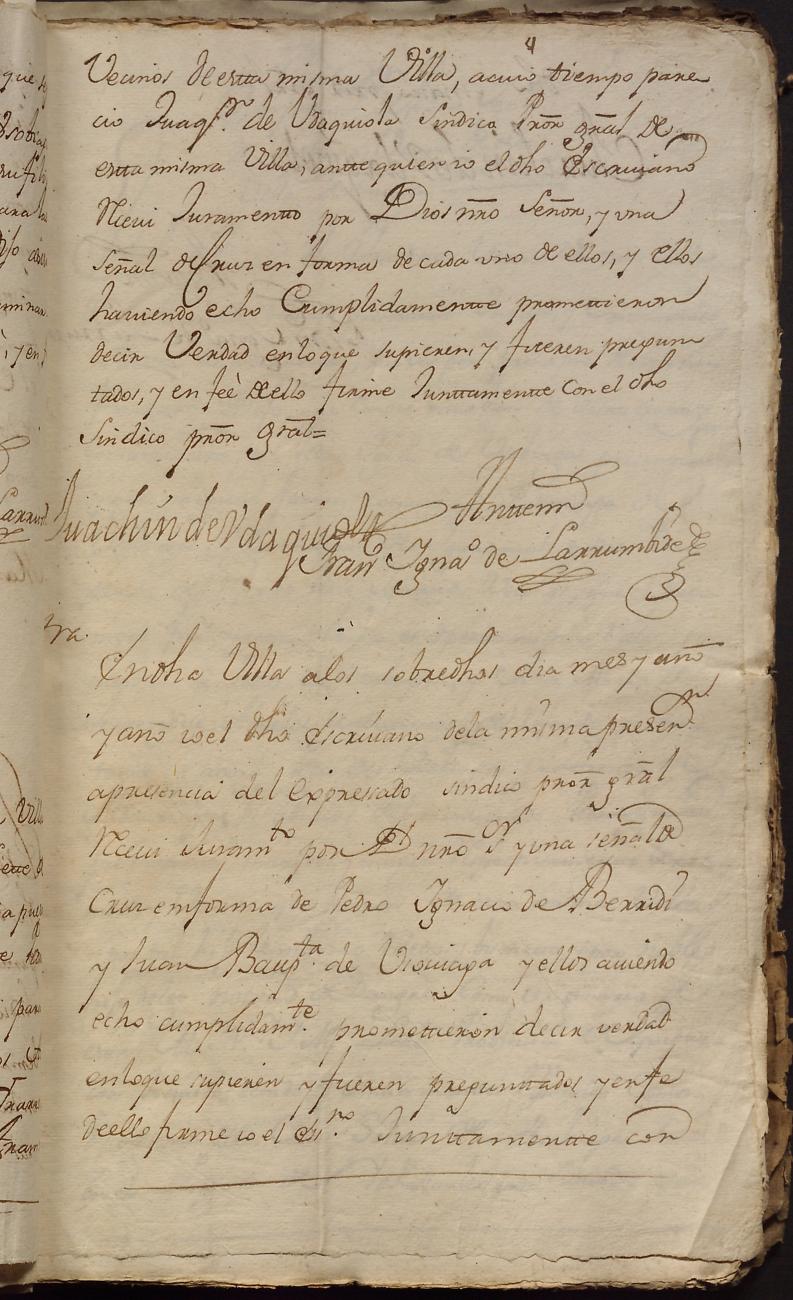 4
Vecinos de estta misma Villa, acuio tiempo pare
cio Juaqn. de Vdaquiola Sindico Pror. gral de
estta misma Villa, antte quien io el dho Escriuano
Recui Juramentto por Dios nro Señor, y vna
señal de Cruz en forma de cada vno de ellos, y ellos
hauiendo echo Cumplidamentte promettieron
decir Verdad en lo que supieren, y fueren pregun
tados, y en feè de ello firme Junttamentte Con el dho
Sindico pror gral=
Juachín de Vdaquiola
Antte mi
Fran Ignao de Larrumbide
En dha Villa a los sobredhos dia mes y año
y año io el dho Escriuano de la misma presen
a presencia del Expressado sindico pror gral
Recui Juramto por Ds nro Sr y una señal de
Cruz en forma de Pedro Ignacio de Berridi
y Juan Baupta de Vsouiaga y ellos auiendo
echo cumplidamte promettieron decir verdad
en lo que supieren y fueren preguntados y en fe
de ello firme io el Esno Junttamentte con